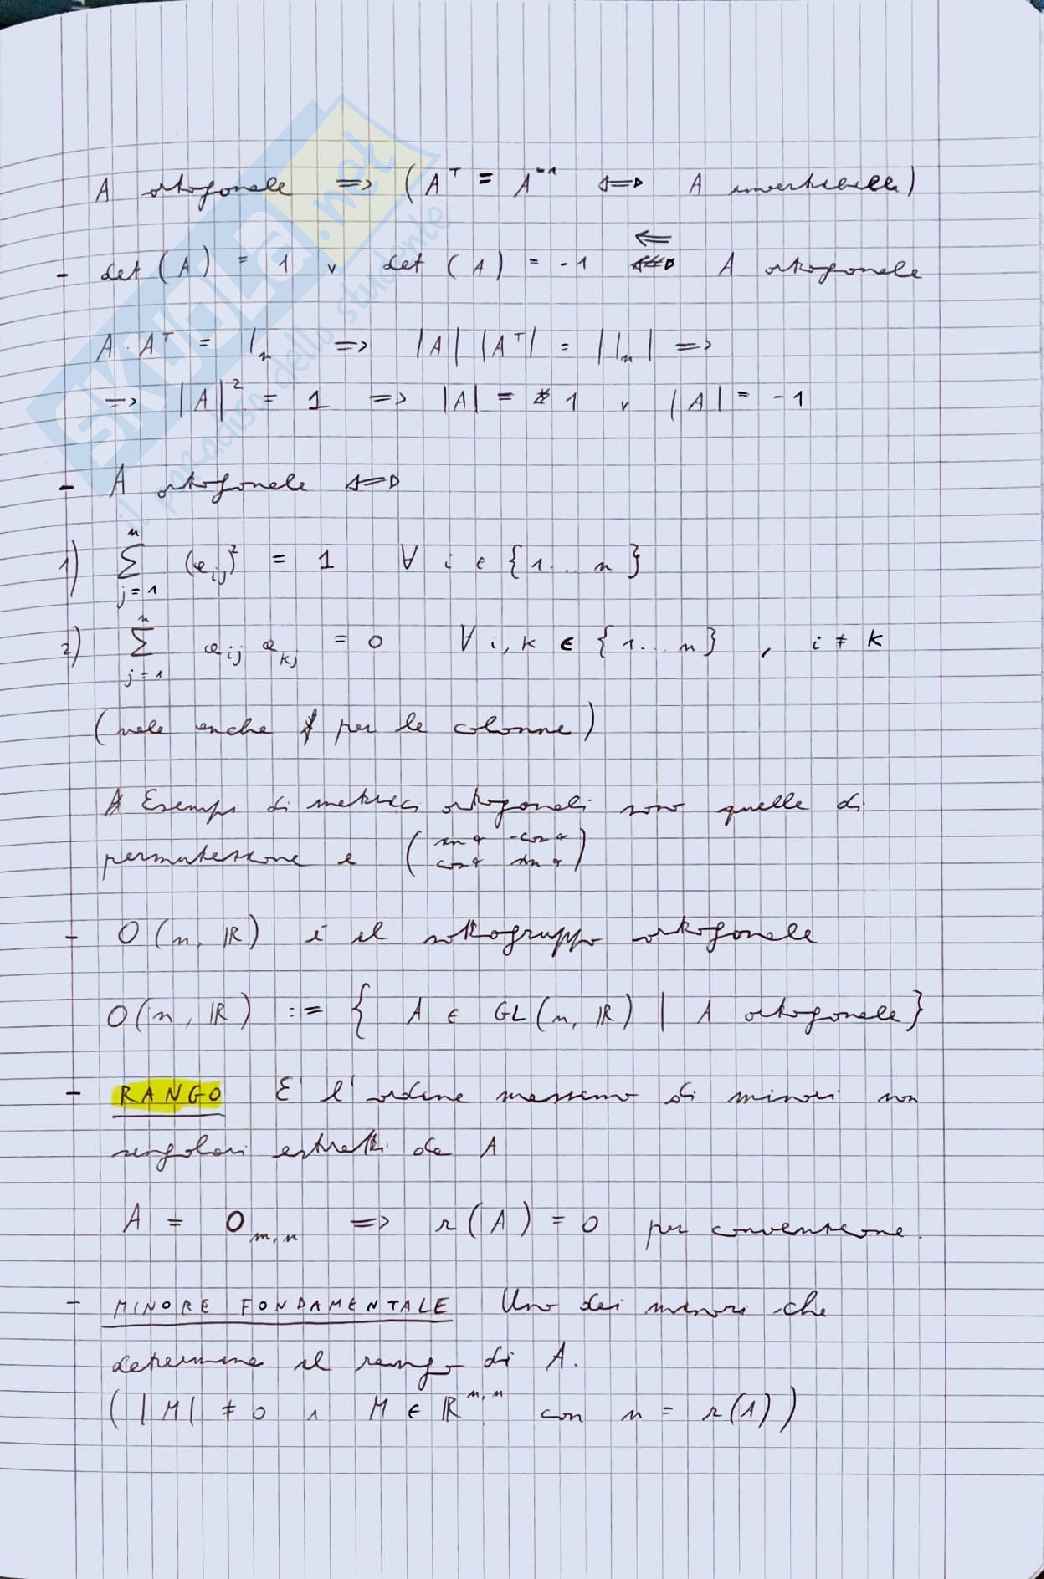 A ortogonale => (A^T = A^-1 <=> A invertibile)
<=
- det(A) = 1 ∨ det(A) = -1 A ortogonale
A · A^T = I_n => |A| |A^T| = |I_n| =>
=> |A|^2 = 1 => |A| = 1 ∨ |A| = -1
- A ortogonale <=>
1) ∑_{j=1}^{n} (a_ij)^2 = 1 ∀ i ∈ {1...n}
2) ∑_{j=1}^{n} a_ij a_kj = 0 ∀ i, k ∈ {1...n}, i ≠ k
(vale anche per le colonne)
Esempi di matrici ortogonali sono quelle di
permutazione e (sin φ -cos φ
cos φ sin φ)
- O(n, ℝ) è il sottogruppo ortogonale
O(n, ℝ) := { A ∈ GL(n, ℝ) | A ortogonale}
- RANGO È l'ordine massimo di minori non
singolari estratti da A
A = O_m,n => r(A) = 0 per convenzione.
- MINORE FONDAMENTALE Uno dei minori che
determina il rango di A.
(|M| ≠ 0 ∧ M ∈ ℝ^n,n con n = r(A))
SKUOLA.net
il paradiso dello studente